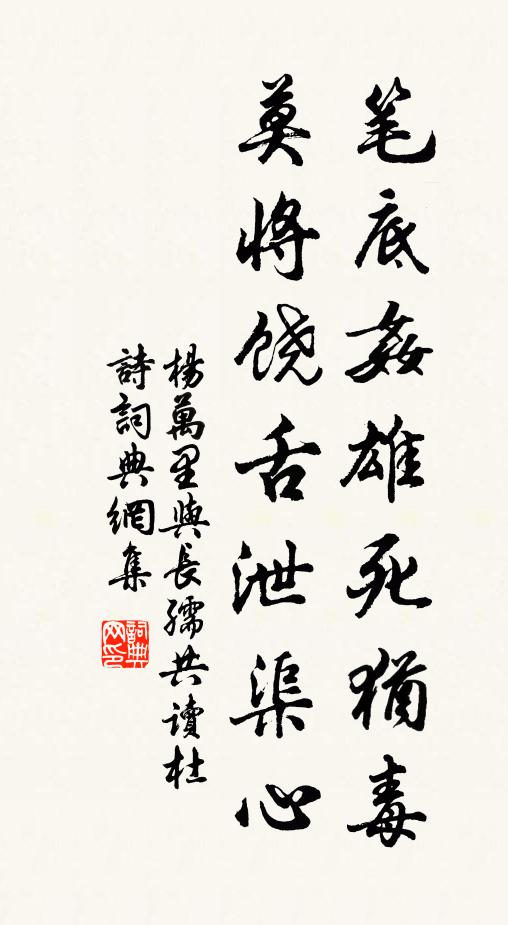 笔底姦雄死猶毒
莫将饶舌泄渠心
楊萬里與長孺共讀杜
詩詞典網集
詞典网印